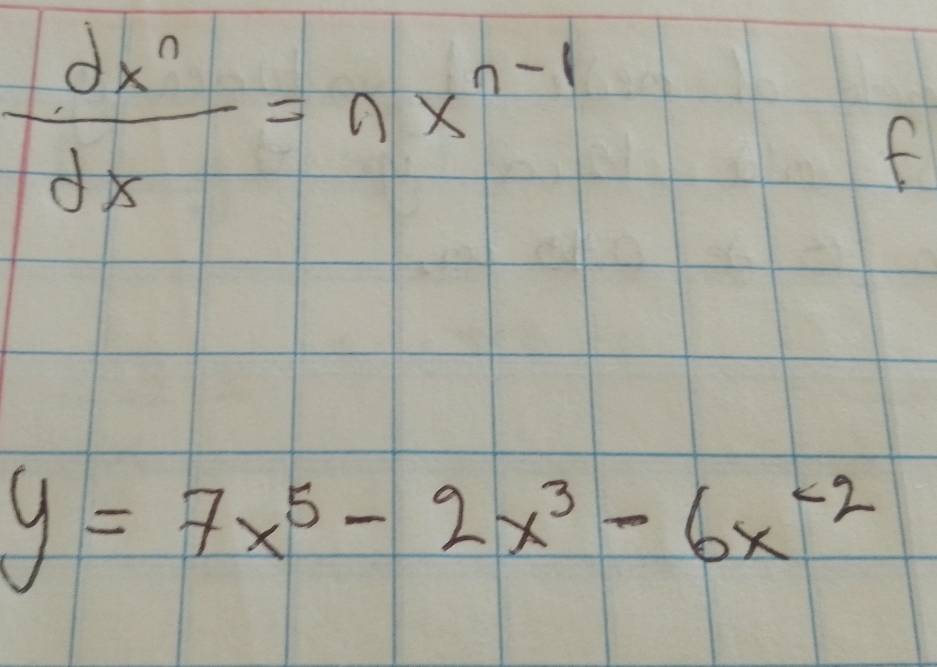 dxⁿ/dx = n xⁿ⁻¹ f
y = 7x⁵ - 2x³ - 6x⁻²